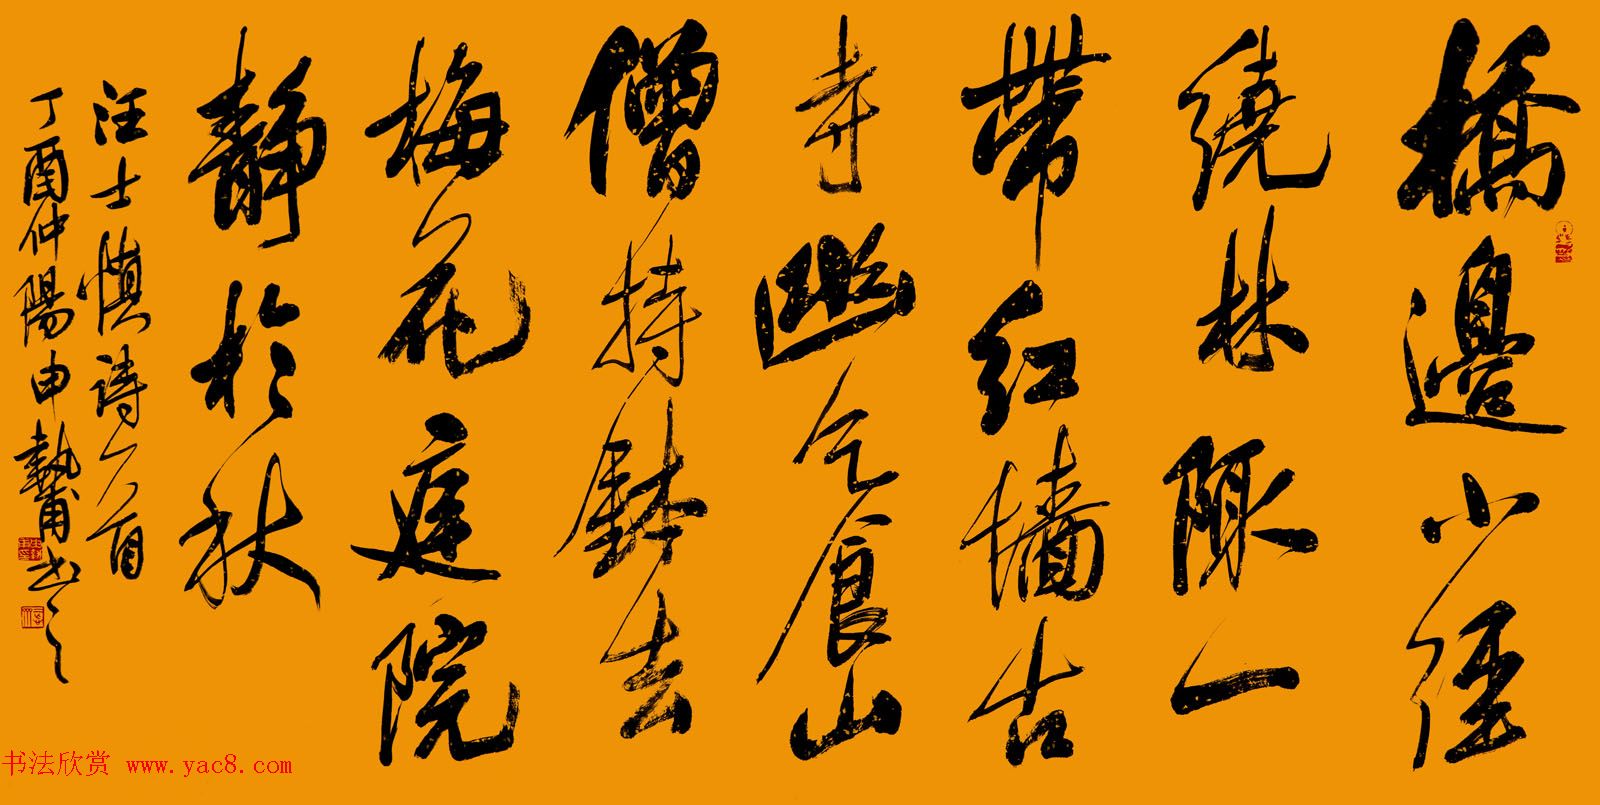 橋邊小徑
繞林陬一
帶紅墻古
寺幽乞食山
僧持鉢去
梅花庭院
靜於秋
汪士慎詩一首
丁酉仲陽申書之
书法欣赏 www.yac8.com